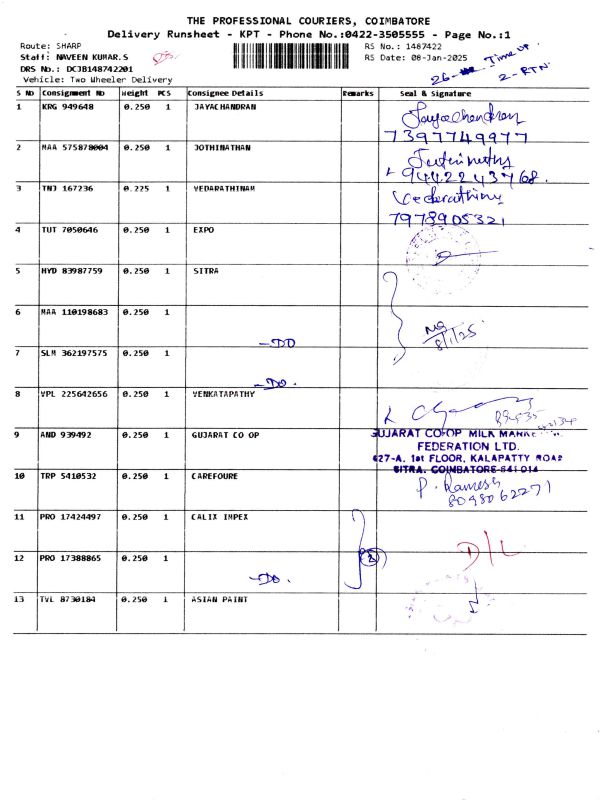 THE PROFESSIONAL COURIERS, COIMBATORE
Delivery Runsheet - KPT - Phone No.:0422-3505555 - Page No.:1
Route: SHARP
RS No.: 1487422
Staff: NAVEEN KUMAR.S
RS Date: 08-Jan-2025
DRS No.: DCJB148742201
Vehicle: Two Wheeler Delivery
26- Time up
2- RTN
S No Consignment No Weight PCS Consignee Details Remarks Seal & Signature
1 KRG 949648 0.250 1 JAYACHANDRAN Jayachandran
7397749977
2 MAA 575878004 0.250 1 JOTHINATHAN
9442243768.
3 TNJ 167236 0.225 1 VEDARATHINAM Vedarathinam
7978905321
4 TUT 7050646 0.250 1 EXPO
5 HYD 83987759 0.250 1 SITRA
6 MAA 110198683 0.250 1 -DO
8/1/25
7 SLM 362197575 0.250 1 -DO.
8 VPL 225642656 0.250 1 VENKATAPATHY
9 AND 939492 0.250 1 GUJARAT CO OP
GUJARAT CO-OP MILK
FEDERATION LTD.
627-A, 1st FLOOR, KALAPATTY ROAD
SITRA, COIMBATORE-641 014
10 TRP 5410532 0.250 1 CAREFOURE P. Ramesh
8098062271
11 PRO 17424497 0.250 1 CALIX IMPEX
12 PRO 17388865 0.250 1 -DO. 2 D/L
13 TVL 8730184 0.250 1 ASIAN PAINT